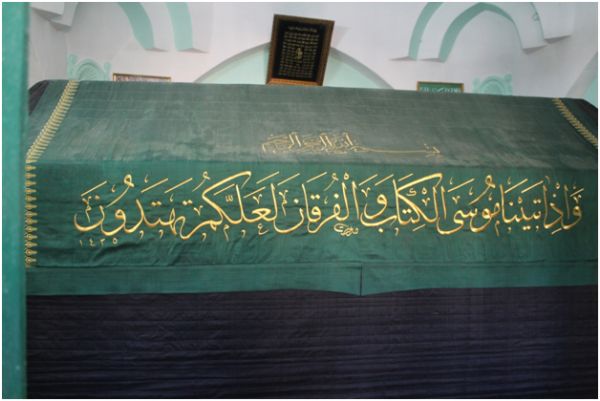 بسم الله الرحمن الرحيم
وَاِذْاٰتَيْنَا مُوسَى الْكِتَابَ وَالْفُرْقَانَ لَعَلَّكُمْ تَهْتَدُونَ
١٤٣٥